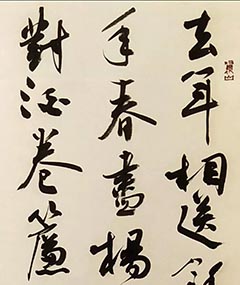 去年相送
年春盡楊
對酒卷簾